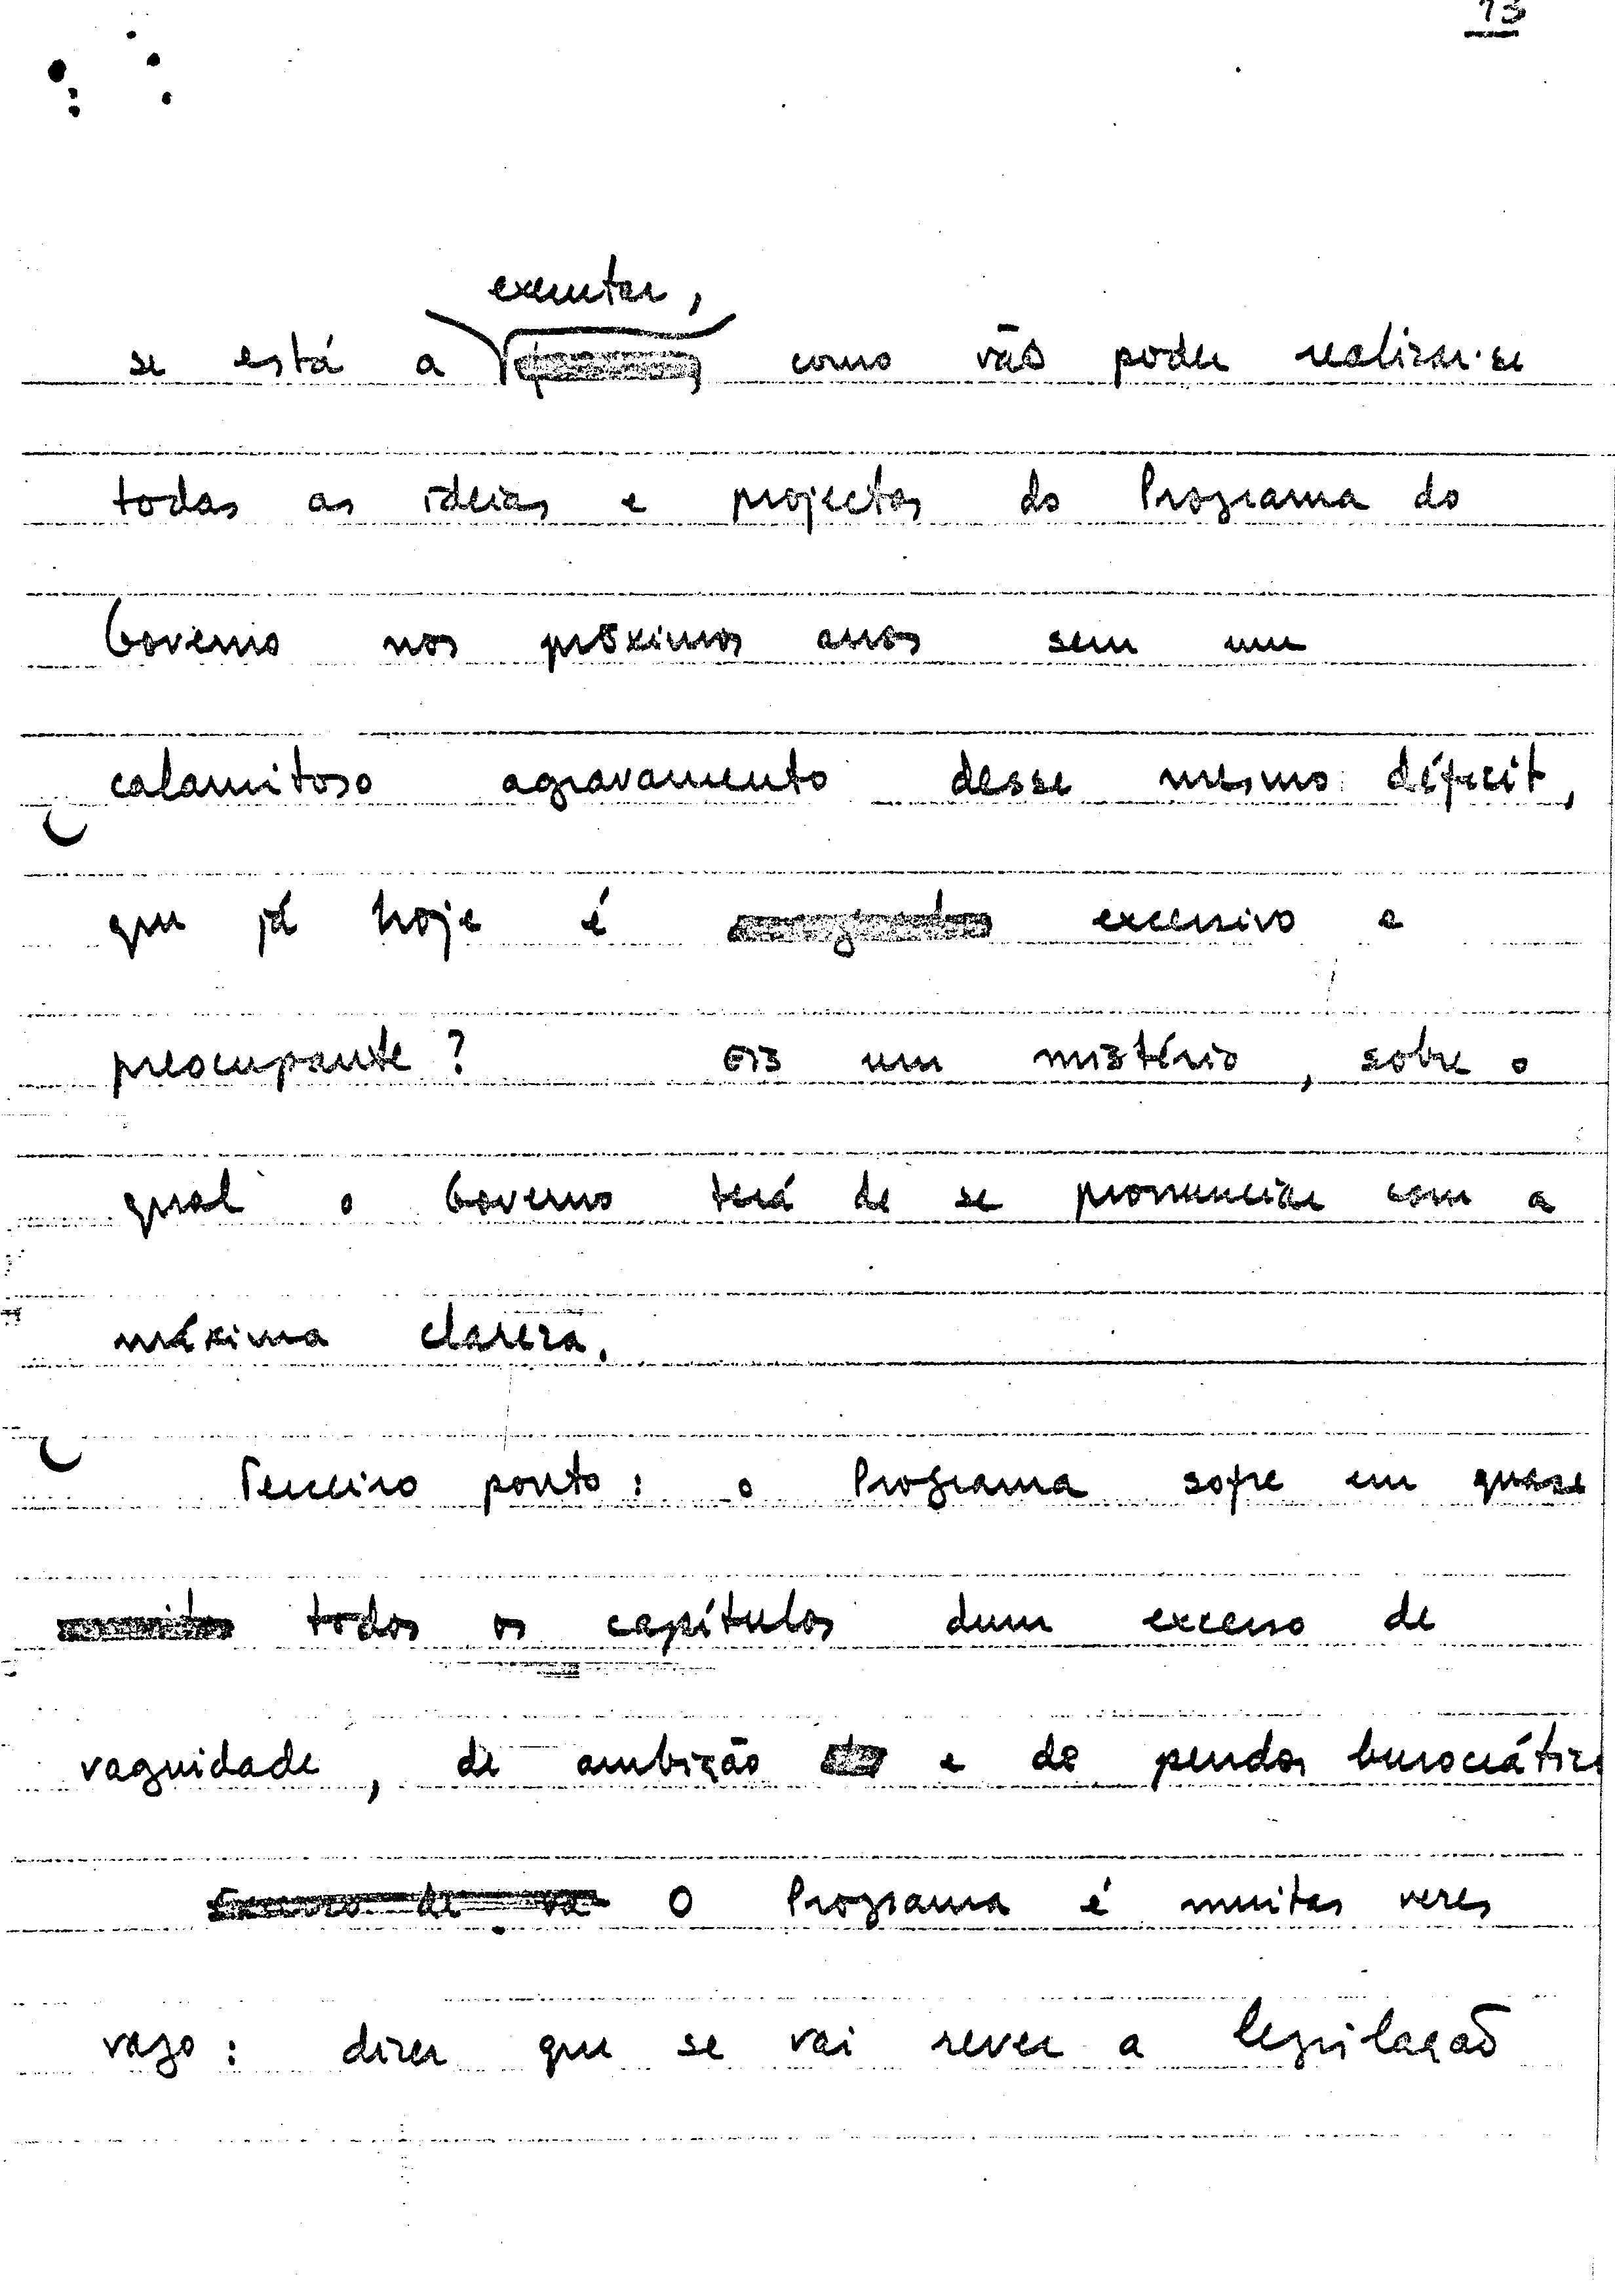 13
executar,
se está a como vão poder realizar-se
todas as ideias e projectos do Programa do
Governo nos próximos anos sem um
calamitoso agravamento desse mesmo déficit,
que já hoje é excessivo e
preocupante? Eis um mistério, sobre o
qual o Governo terá de se pronunciar com a
máxima clareza.
Terceiro ponto: o Programa sofre em quase
todos os capítulos dum excesso de
vaguidade, de ambição e de pendor burocrático
O Programa é muitas vezes
vago: dizer que se vai rever a legislação